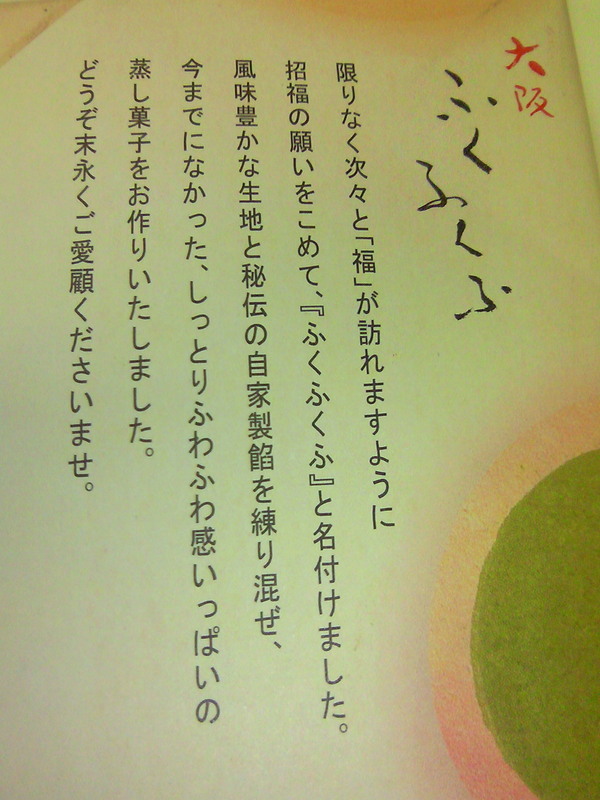 大阪
ふくふくふ
限りなく次々と「福」が訪れますように
招福の願いをこめて、『ふくふくふ』と名付けました。
風味豊かな生地と秘伝の自家製餡を練り混ぜ、
今までになかった、しっとりふわふわ感いっぱいの
蒸し菓子をお作りいたしました。
どうぞ末永くご愛顧くださいませ。